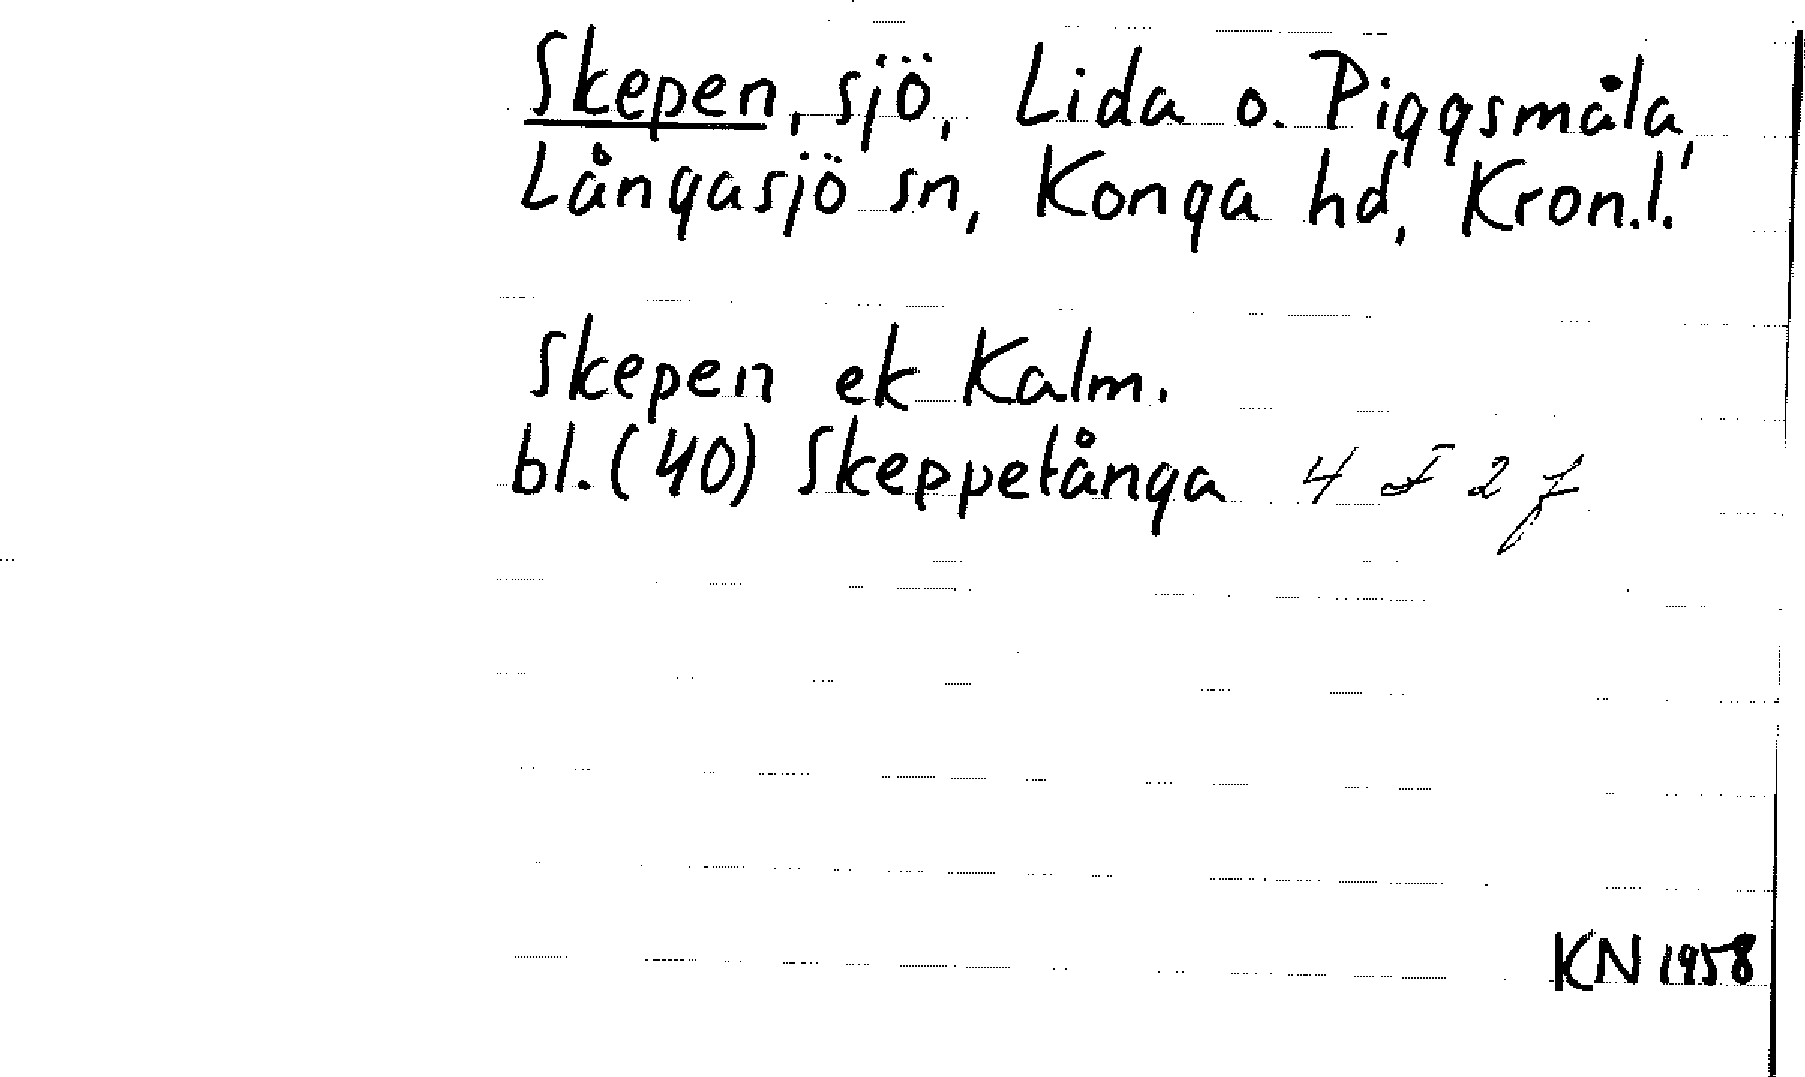 Skepen, sjö, Lida o. Piggsmåla,
Långasjö sn, Konga hd, Kron.l.
Skepen ek Kalm.
bl. (40) Skeppetånga 4 F 2 f
KN 1958